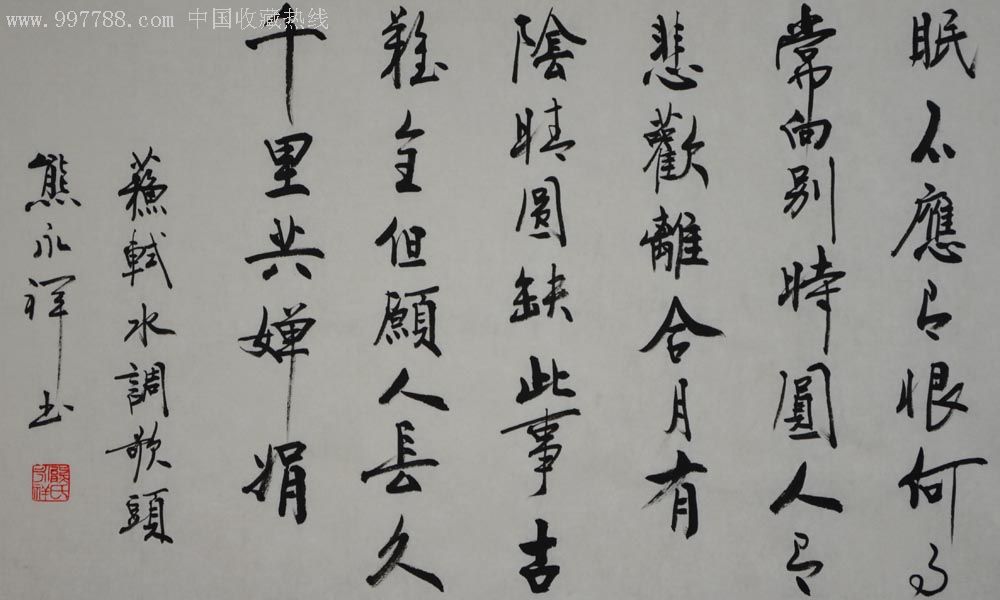 www.997788.com 中国收藏热线
眠不應有恨何事
常向別時圓人有
悲歡離合月有
陰晴圓缺此事古
難全但願人長久
千里共嬋娟
蘇軾水調歌頭
熊永祥书